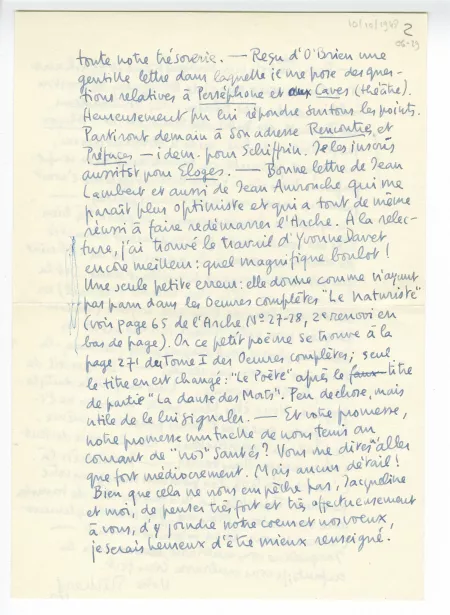 10/10/1948
2
06-29
toute notre trésorerie. — Reçu d'O'Brien une
gentille lettre dans laquelle il me pose des ques-
tions relatives à Perséphone et aux Caves (théâtre).
Heureusement pu lui répondre sur tous les points.
Partiront demain à son adresse Rencontres et
Préfaces — idem pour Schiffrin. Je les inscris
aussitôt pour Eloges. — Bonne lettre de Jean
Lambert et aussi de Jean Amrouche qui me
paraît plus optimiste et qui a tout de même
réussi à faire redémarrer l'Arche. A la relec-
ture, j'ai trouvé le travail d'Yvonne Davet
encore meilleur : quel magnifique boulot !
Une seule petite erreur : elle donne comme n'ayant
pas paru dans les Oeuvres complètes "Le Naturiste"
(voir page 65 de l'Arche (N° 27-28, 2e renvoi en
bas de page). Or ce petit poème se trouve à la
page 271 du Tome I des Oeuvres complètes ; seul
le titre en est changé : "Le Poète" après le faux-titre
de partie "La danse des Morts". Peu de chose, mais
utile de le lui signaler. — Et votre promesse,
notre promesse mutuelle de nous tenir au
courant de "nos" santés ? Vous me dites aller
que fort médiocrement. Mais aucun détail !
Bien que cela ne nous empêche pas, Jacqueline
et moi, de penser très fort et très affectueusement
à vous, d'y joindre notre coeur et nos voeux,
je serais heureux d'être mieux renseigné.